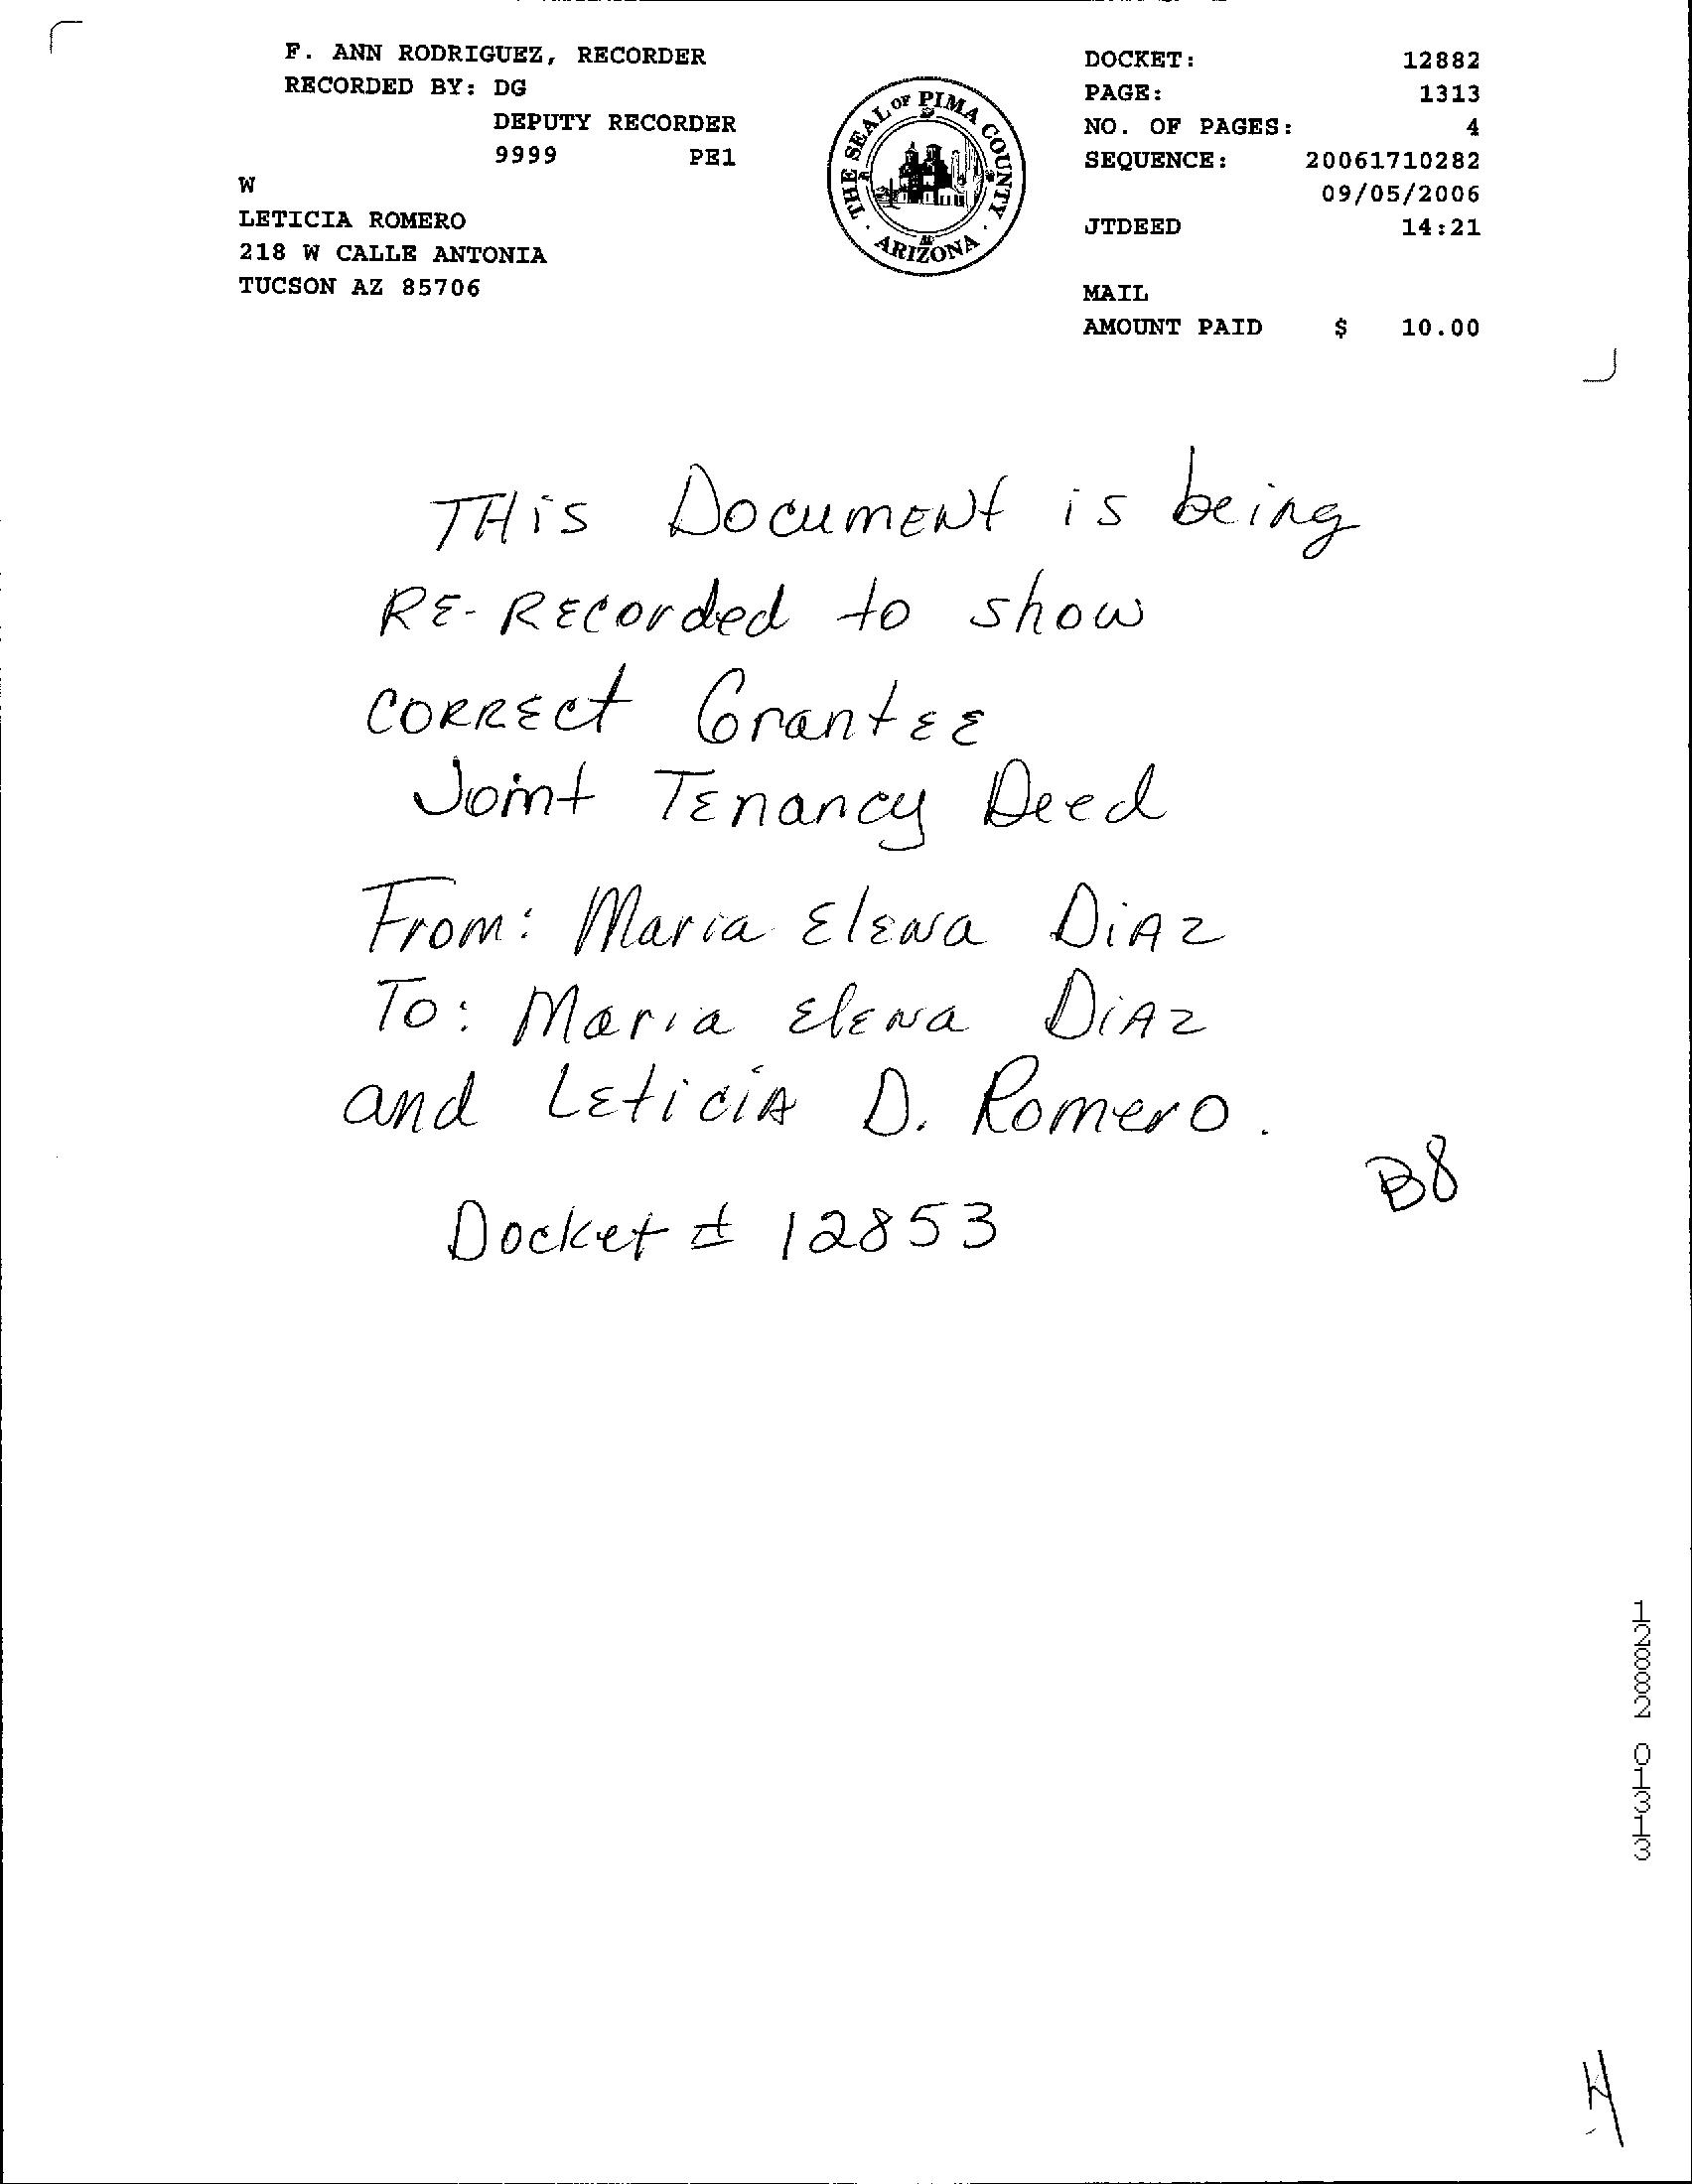 F. ANN RODRIGUEZ, RECORDER
RECORDED BY: DG
DEPUTY RECORDER
9999 PE1
W
LETICIA ROMERO
218 W CALLE ANTONIA
TUCSON AZ 85706
THE SEAL OF PIMA COUNTY
ARIZONA
DOCKET: 12882
PAGE: 1313
NO. OF PAGES: 4
SEQUENCE: 20061710282
09/05/2006
JTDEED 14:21
MAIL
AMOUNT PAID $ 10.00
THiS DocumENt is being
RE-REcorded to show
CORRECt GrantEE
Joint TEnancy Deed
From: Maria ElENa DiAz
To: Maria ElENa DiAz
and LEticiA D. Romero.
B8
Docket # 12853
12882 01313